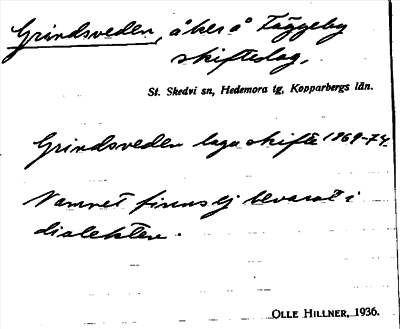 Grindsveden, åker å Täggeby
skifteslag,
St. Skedvi sn, Hedemora tg, Kopparbergs län.
Grindsveden laga skifte 1869-74.
Namnet finns ej bevarat i
dialekten.
OLLE HILLNER, 1936.